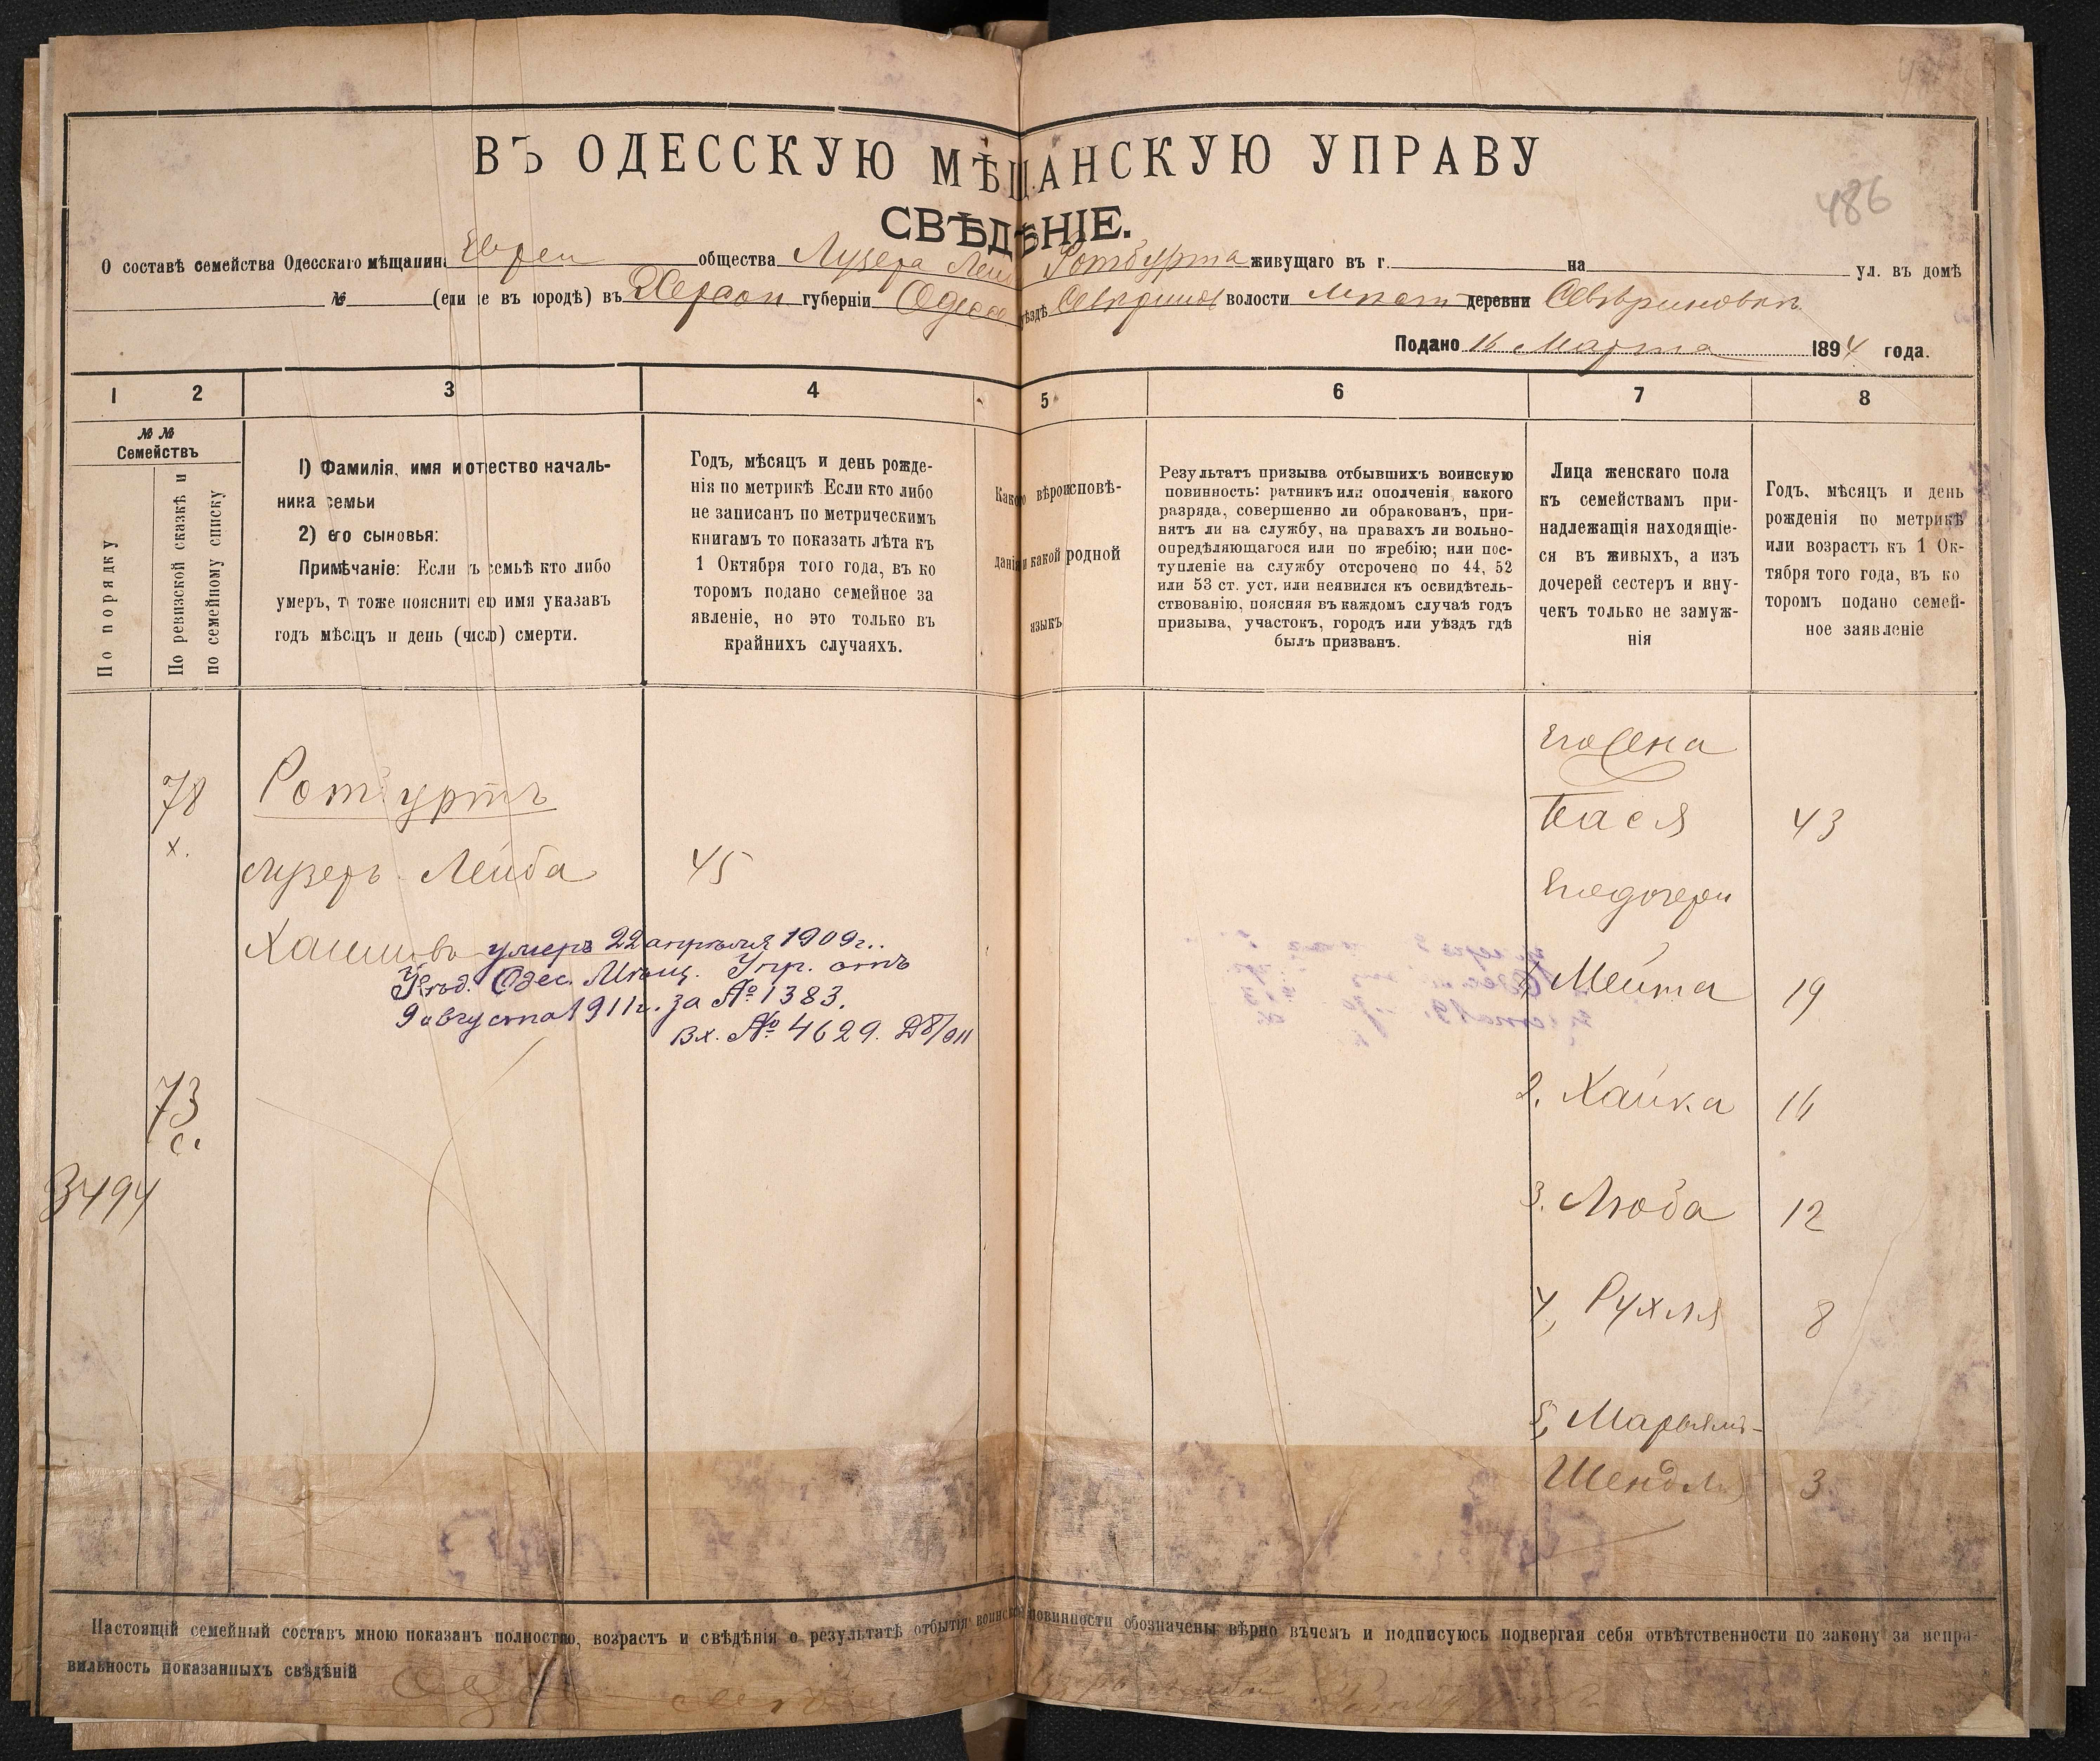 486
ВЪ ОДЕССКУЮ МѢЩАНСКУЮ УПРАВУ
СВѢДѢНІЕ.
О составѣ семейства Одесскаго мѣщанина Евреи общества Лузера Лейбы Ротбурта живущаго въ г. на ул. въ домѣ
№ (если не въ городѣ) въ Херсон губерніи Одесс уѣздѣ Севкринов волости мест деревни Севериновки
Подано 16 Марта 1894 года.
1 2 3 4 5 6 7 8
№ №
Семействъ
По порядку
По ревизской сказкѣ и
по семейному списку
1) Фамилія, имя и отчество началь-
ника семьи
2) его сыновья:
Примѣчаніе: Если въ семьѣ кто либо
умеръ, то тоже пояснить его имя указавъ
годъ мѣсяцъ и день (число) смерти.
Годъ, мѣсяцъ и день рожде-
нія по метрикѣ Если кто либо
не записанъ по метрическимъ
книгамъ то показать лѣта къ
1 Октября того года, въ ко
торомъ подано семейное за
явленіе, но это только въ
крайнихъ случаяхъ.
Какого вѣроисповѣ-
данія и какой родной
языкъ
Результатъ призыва отбывшихъ воинскую
повинность: ратникъ или ополченія, какого
разряда, совершенно ли обракованъ, при-
нятъ ли на службу, на правахъ ли вольно-
опредѣляющагося или по жребію; или пос-
тупленіе на службу отсрочено по 44, 52
или 53 ст. уст. или неявился къ освидѣтель-
ствованію, поясняя въ каждомъ случаѣ годъ
призыва, участокъ, городъ или уѣздъ гдѣ
былъ призванъ.
Лица женскаго пола
къ семействамъ при-
надлежащія находящіе-
ся въ живыхъ, а изъ
дочерей сестеръ и вну-
чекъ только не замуж-
нія
Годъ, мѣсяцъ и день
рожденія по метрикѣ
или возрастъ къ 1 Ок-
тября того года, въ ко
торомъ подано семей-
ное заявленіе
Его жена
78 Ротбуртъ Бася 43
х.
Лузеръ Лейба 45 Его дочери
Хаимовъ умеръ 22 апрѣля 1909 г..
Увѣд. Одес. Мѣщ. Упр. отъ 1 Мейта 19
9 августа 1911 г. за № 1383.
Вх. № 4629. 8/911
73 2. Хайка 16
с.
3494 3. Люба 12
4, Рухля 8
5, Марьямъ-
Шендля 3
Настоящій семейный составъ мною показанъ полностью, возрастъ и свѣдѣнія о результатѣ отбытія воинской повинности обозначены вѣрно въчемъ и подписуюсь подвергая себя отвѣтственности по закону за непра-
вильность показанныхъ свѣдѣній